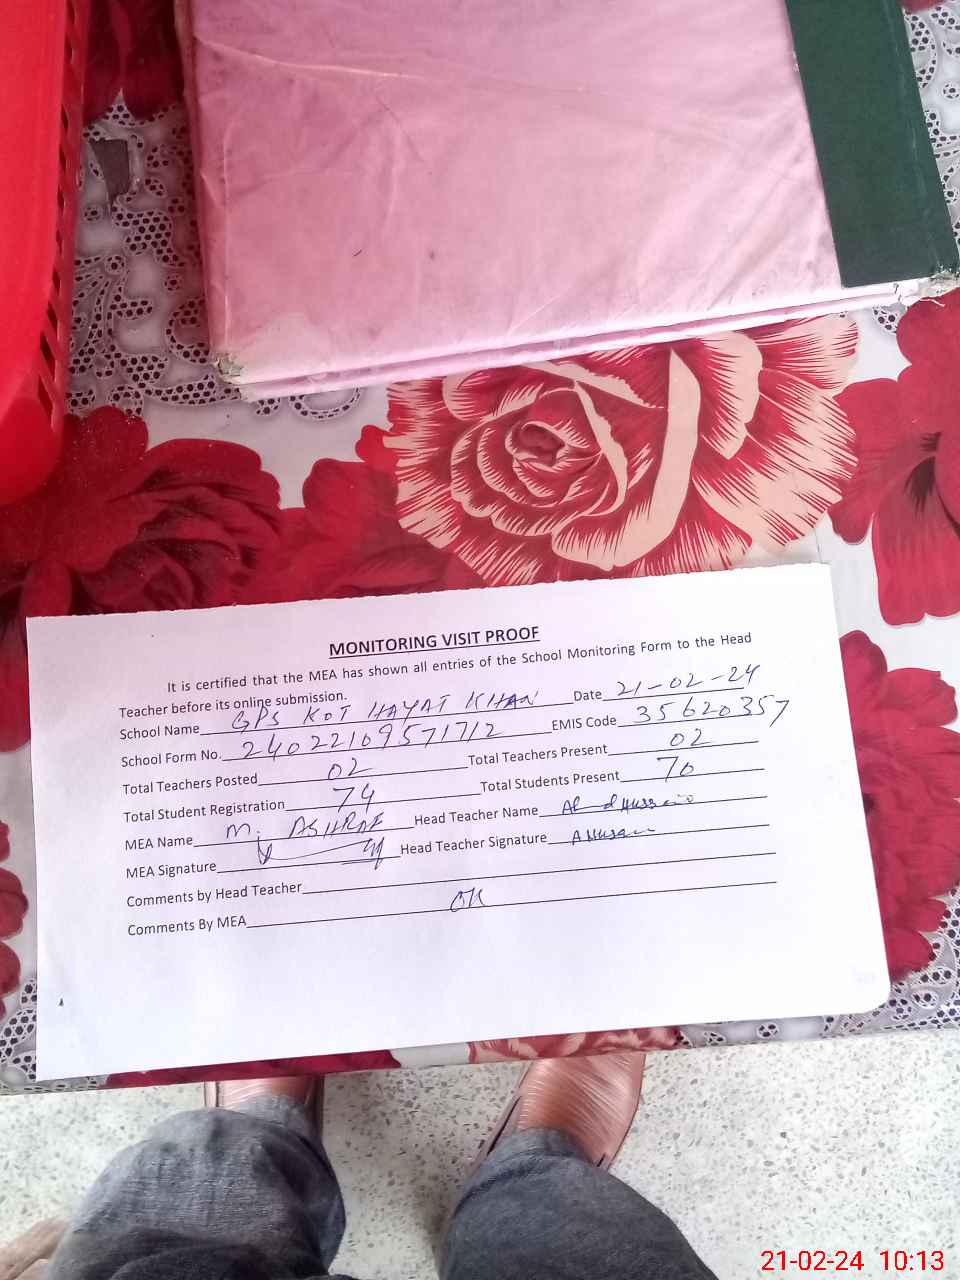 MONITORING VISIT PROOF
It is certified that the MEA has shown all entries of the School Monitoring Form to the Head
Teacher before its online submission.
School Name GPS KOT HAYAT KHAN Date 21-02-24
School Form No. 24022109571712 EMIS Code 35620357
Total Teachers Posted 02 Total Teachers Present 02
Total Student Registration 74 Total Students Present 70
MEA Name M. ASHRAF Head Teacher Name
MEA Signature Head Teacher Signature
Comments by Head Teacher
Comments By MEA OK
21-02-24 10:13